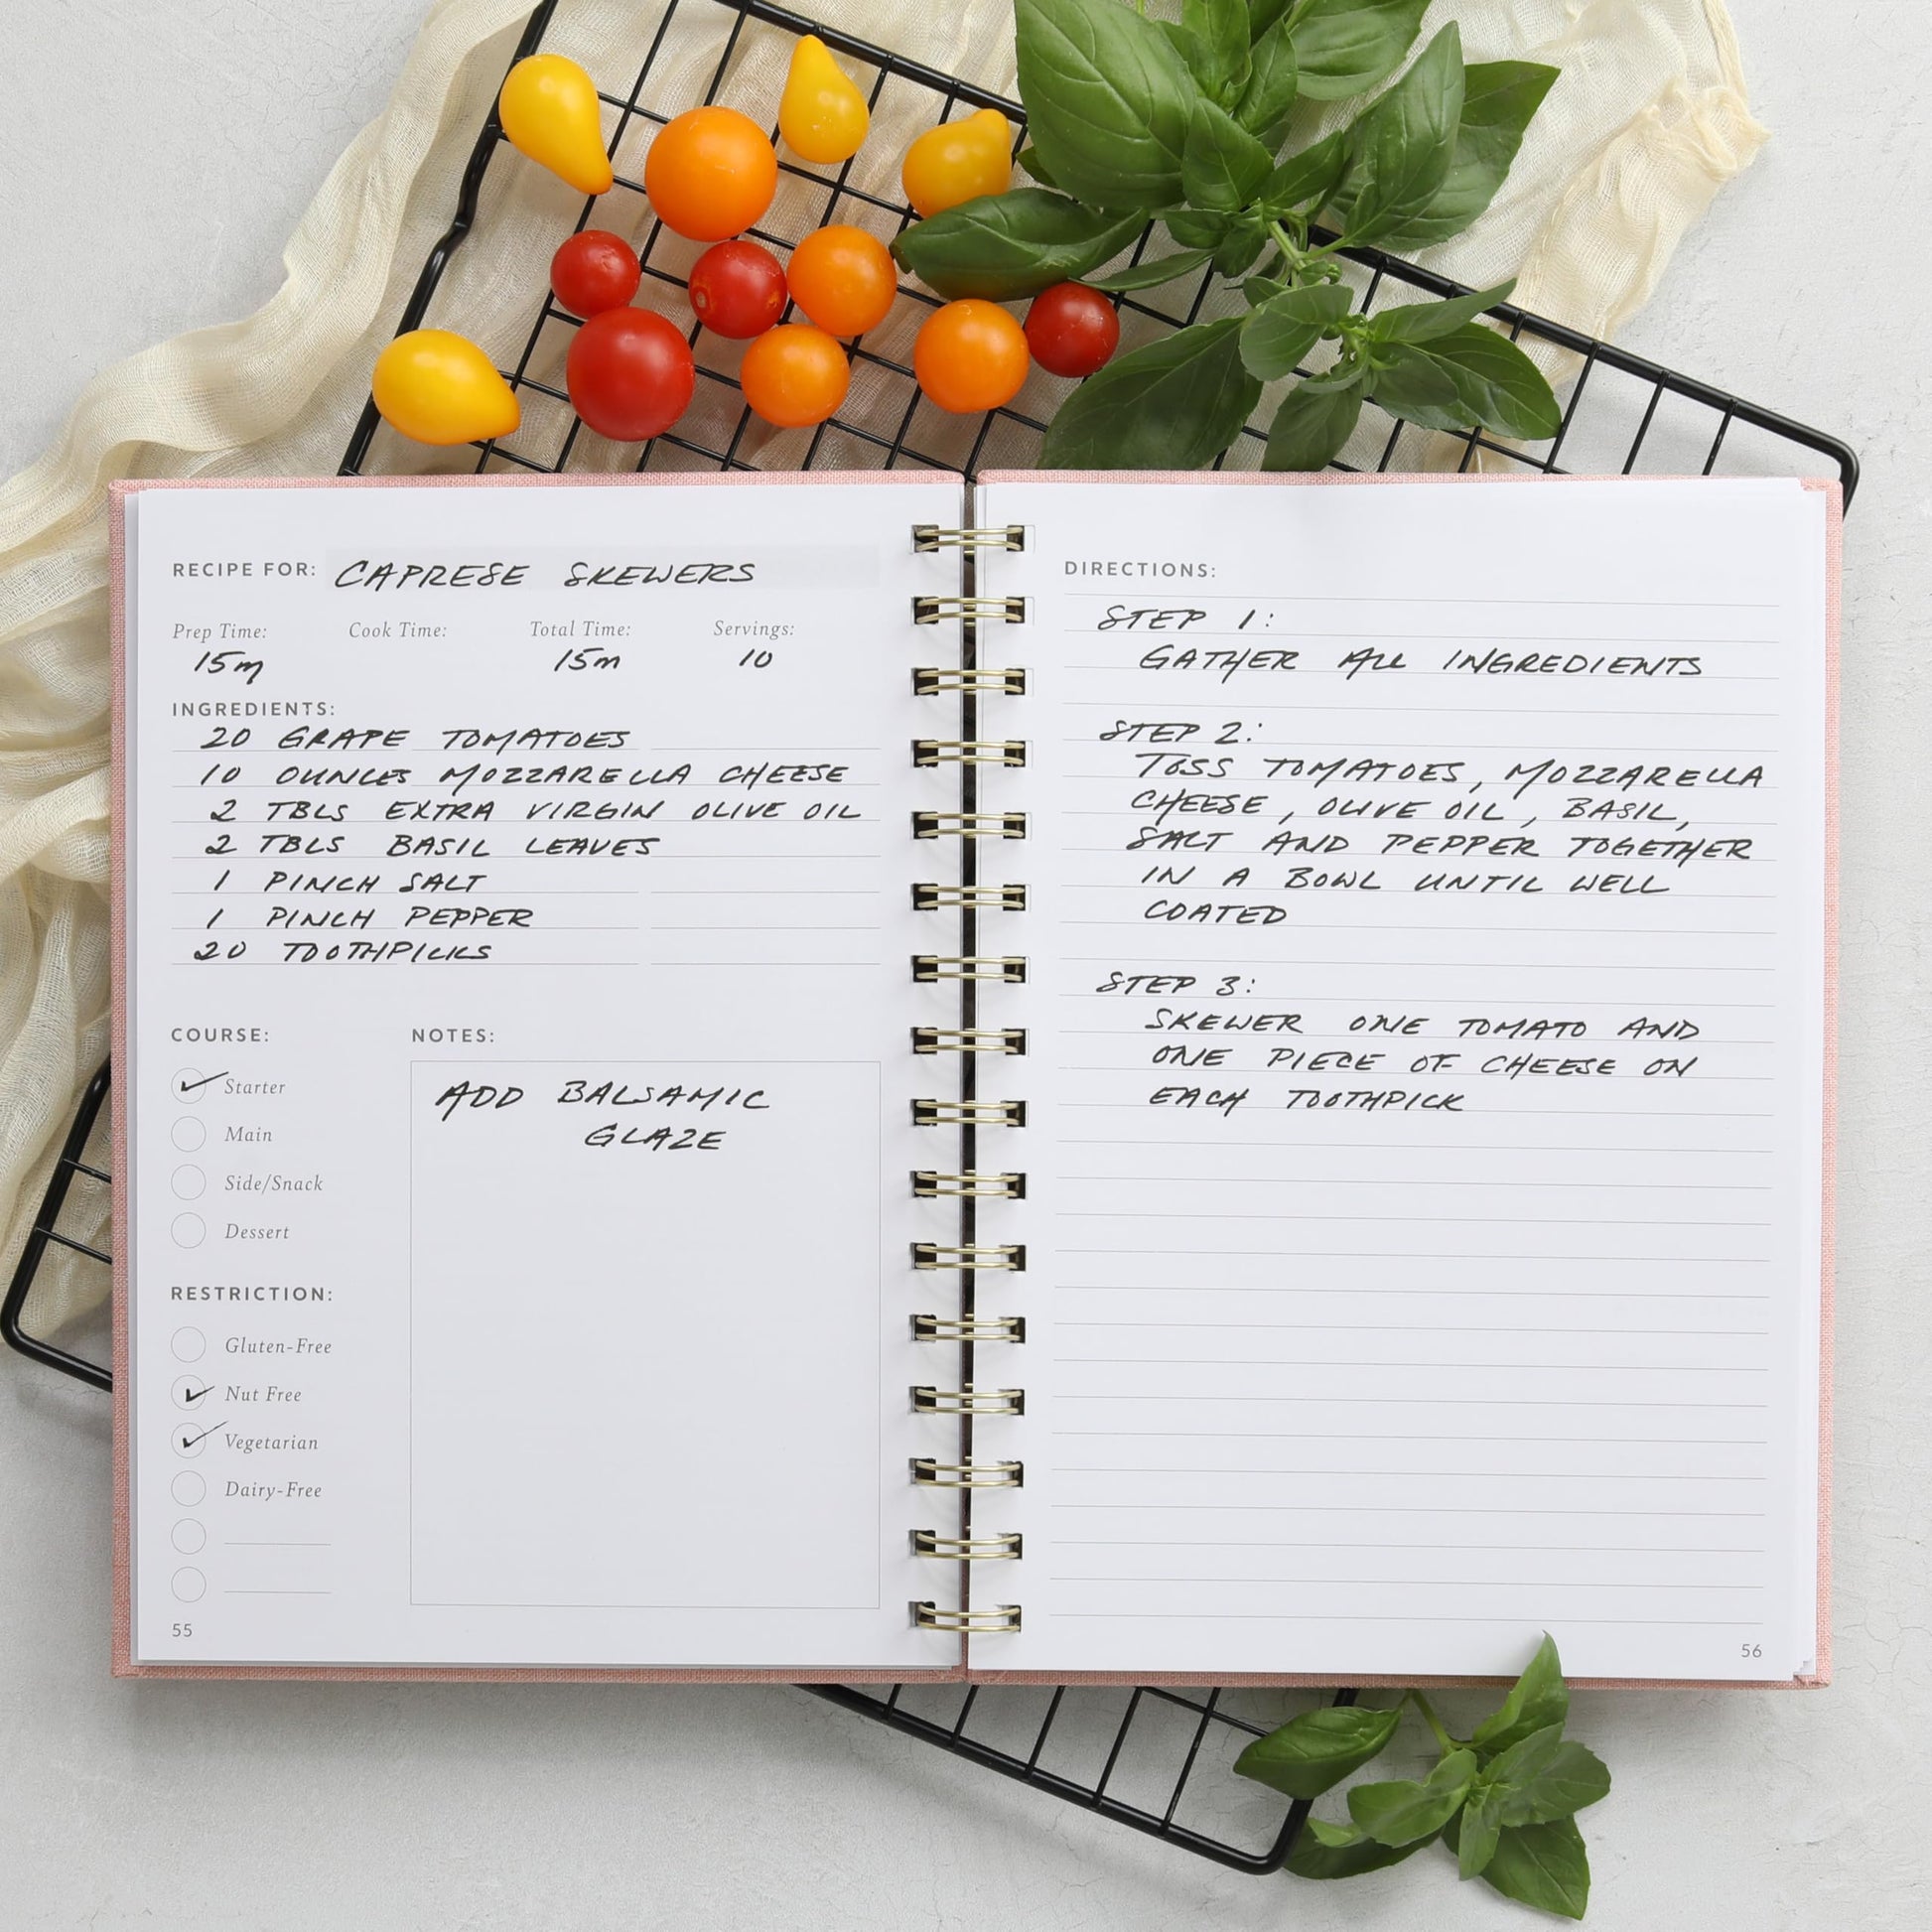 RECIPE FOR: CAPRESE SKEWERS
Prep Time: Cook Time: Total Time: Servings:
15m 15m 10
INGREDIENTS:
20 GRAPE TOMATOES
10 OUNCES MOZZARELLA CHEESE
2 TBLS EXTRA VIRGIN OLIVE OIL
2 TBLS BASIL LEAVES
1 PINCH SALT
1 PINCH PEPPER
20 TOOTHPICKS
COURSE:
Starter
Main
Side/Snack
Dessert
RESTRICTION:
Gluten-Free
Nut Free
Vegetarian
Dairy-Free
NOTES:
ADD BALSAMIC
GLAZE
55
DIRECTIONS:
STEP 1:
GATHER ALL INGREDIENTS
STEP 2:
TOSS TOMATOES, MOZZARELLA
CHEESE, OLIVE OIL, BASIL,
SALT AND PEPPER TOGETHER
IN A BOWL UNTIL WELL
COATED
STEP 3:
SKEWER ONE TOMATO AND
ONE PIECE OF CHEESE ON
EACH TOOTHPICK
56